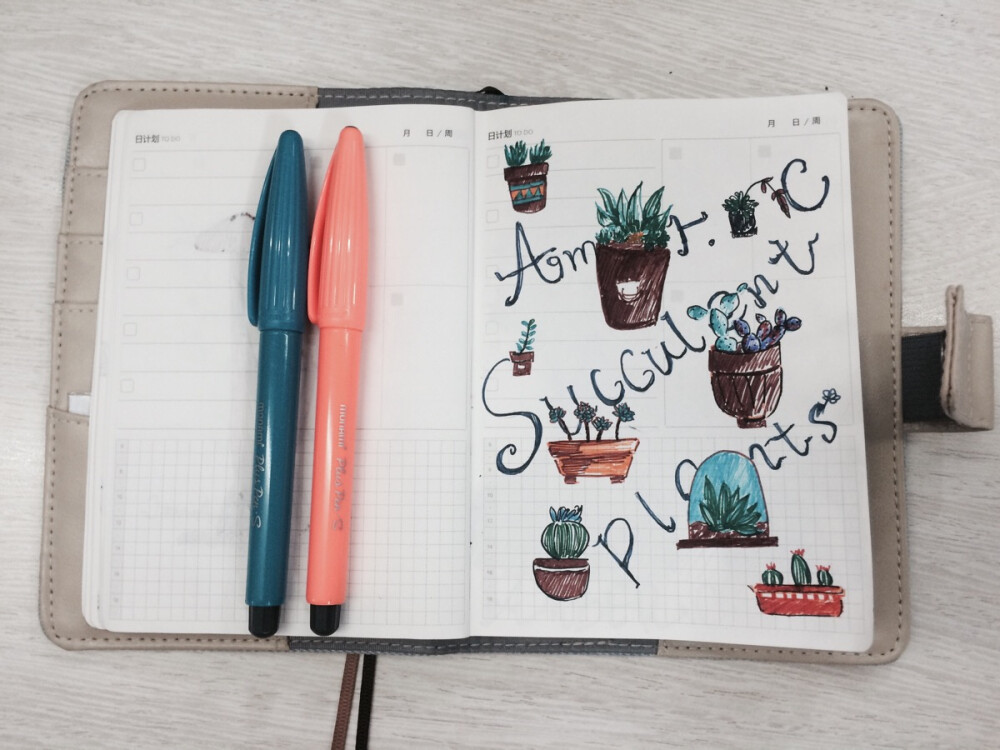 日计划 TO DO
月 日 / 周
monami Plus Pen S
monami Plus Pen S
日计划 TO DO
月 日 / 周
Am r. C
Succulent
plants